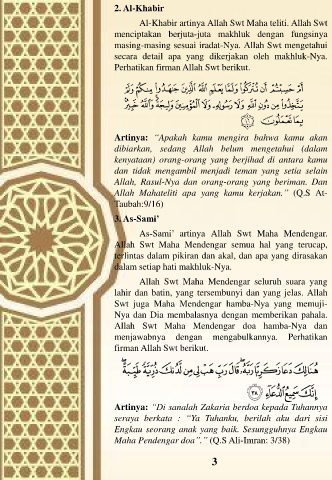 2. Al-Khabir
Al-Khabir artinya Allah Swt Maha teliti. Allah Swt
menciptakan berjuta-juta makhluk dengan fungsinya
masing-masing sesuai iradat-Nya. Allah Swt mengetahui
secara detail apa yang dikerjakan oleh makhluk-Nya.
Perhatikan firman Allah Swt berikut.
أَمْ حَسِبْتُمْ أَن تُتْرَكُوا۟ وَلَمَّا يَعْلَمِ ٱللَّهُ ٱلَّذِينَ جَٰهَدُوا۟ مِنكُمْ وَلَمْ
يَتَّخِذُوا۟ مِن دُونِ ٱللَّهِ وَلَا رَسُولِهِۦ وَلَا ٱلْمُؤْمِنِينَ وَلِيجَةً وَٱللَّهُ خَبِيرٌۢ
بِمَا تَعْمَلُونَ ١٦
Artinya: "Apakah kamu mengira bahwa kamu akan
dibiarkan, sedang Allah belum mengetahui (dalam
kenyataan) orang-orang yang berjihad di antara kamu
dan tidak mengambil menjadi teman yang setia selain
Allah, Rasul-Nya dan orang-orang yang beriman. Dan
Allah Mahateliti apa yang kamu kerjakan." (Q.S At-
Taubah:9/16)
3. As-Sami'
As-Sami' artinya Allah Swt Maha Mendengar.
Allah Swt Maha Mendengar semua hal yang terucap,
terlintas dalam pikiran dan akal, dan apa yang dirasakan
dalam setiap hati makhluk-Nya.
Allah Swt Maha Mendengar seluruh suara yang
lahir dan batin, yang tersembunyi dan yang jelas. Allah
Swt juga Maha Mendengar hamba-Nya yang memuji-
Nya dan Dia membalasnya dengan memberikan pahala.
Allah Swt Maha Mendengar doa hamba-Nya dan
menjawabnya dengan mengabulkannya. Perhatikan
firman Allah Swt berikut.
هُنَالِكَ دَعَا زَكَرِيَّا رَبَّهُۥ ۖ قَالَ رَبِّ هَبْ لِى مِن لَّدُنكَ ذُرِّيَّةً طَيِّبَةً ۖ
إِنَّكَ سَمِيعُ ٱلدُّعَآءِ ٣٨
Artinya: "Di sanalah Zakaria berdoa kepada Tuhannya
seraya berkata : "Ya Tuhanku, berilah aku dari sisi
Engkau seorang anak yang baik. Sesungguhnya Engkau
Maha Pendengar doa"." (Q.S Ali-Imran: 3/38)
3